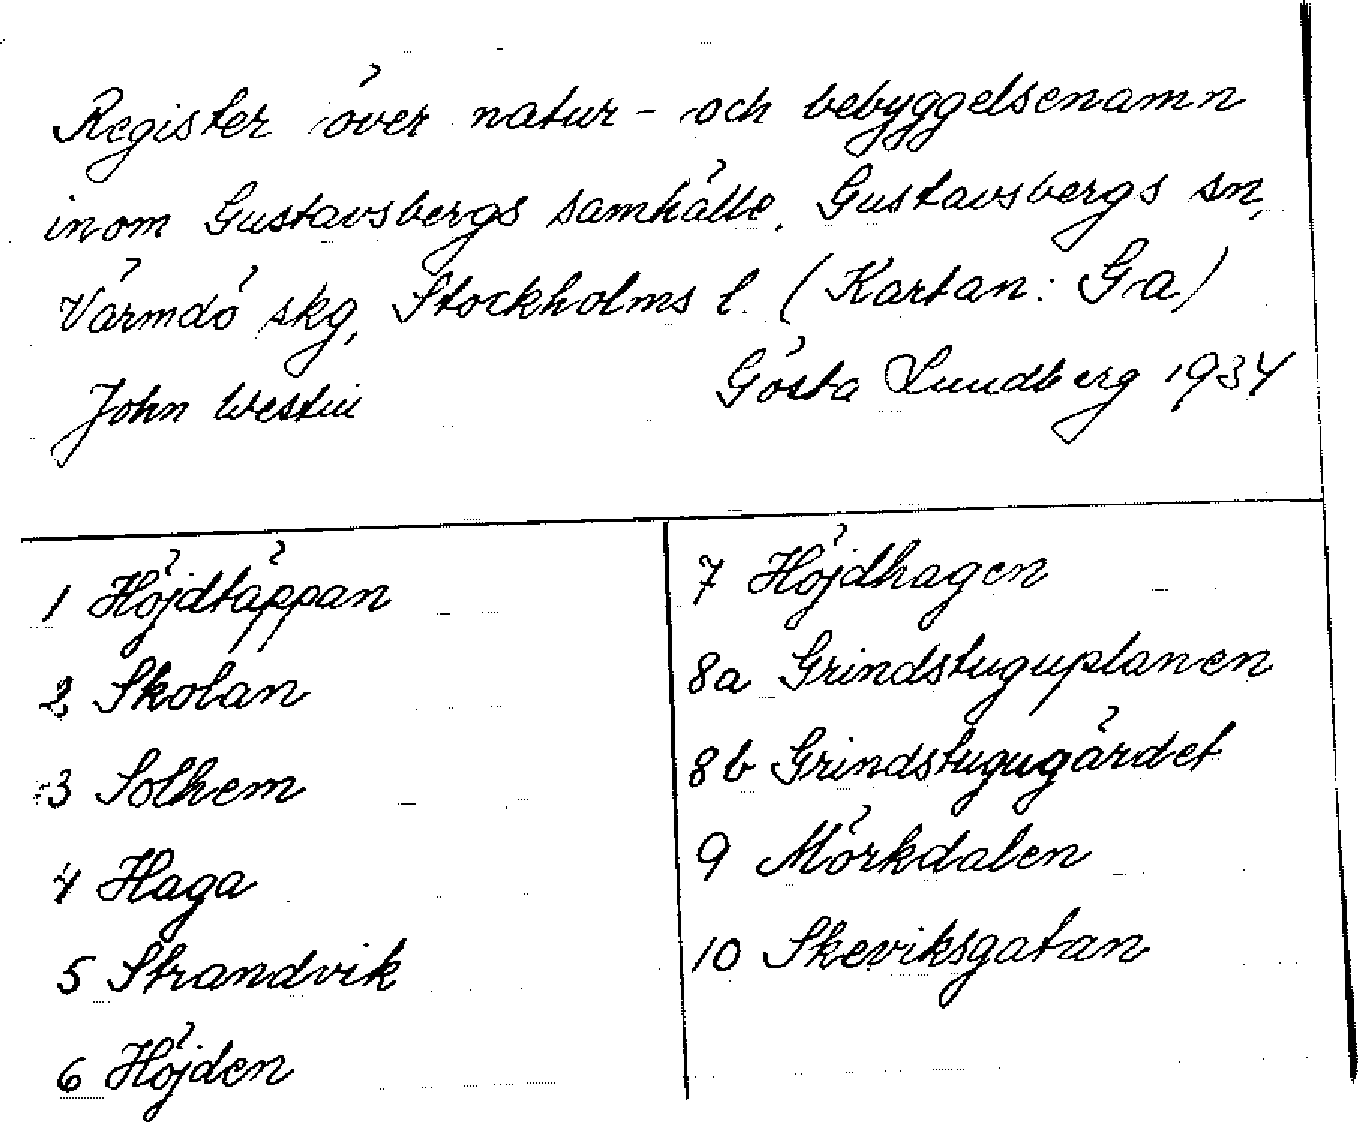 Register över natur- och bebyggelsenamn
inom Gustavsbergs samhälle, Gustavsbergs sn,
Värmdö skg, Stockholms l. (Kartan: Ga)
John Westin
Gösta Lundberg 1934
1 Höjdtäppan
2 Skolan
3 Solhem
4 Haga
5 Strandvik
6 Höjden
7 Höjdhagen
8a Grindstuguplanen
8b Grindstugugärdet
9 Mörkdalen
10 Skeviksgatan